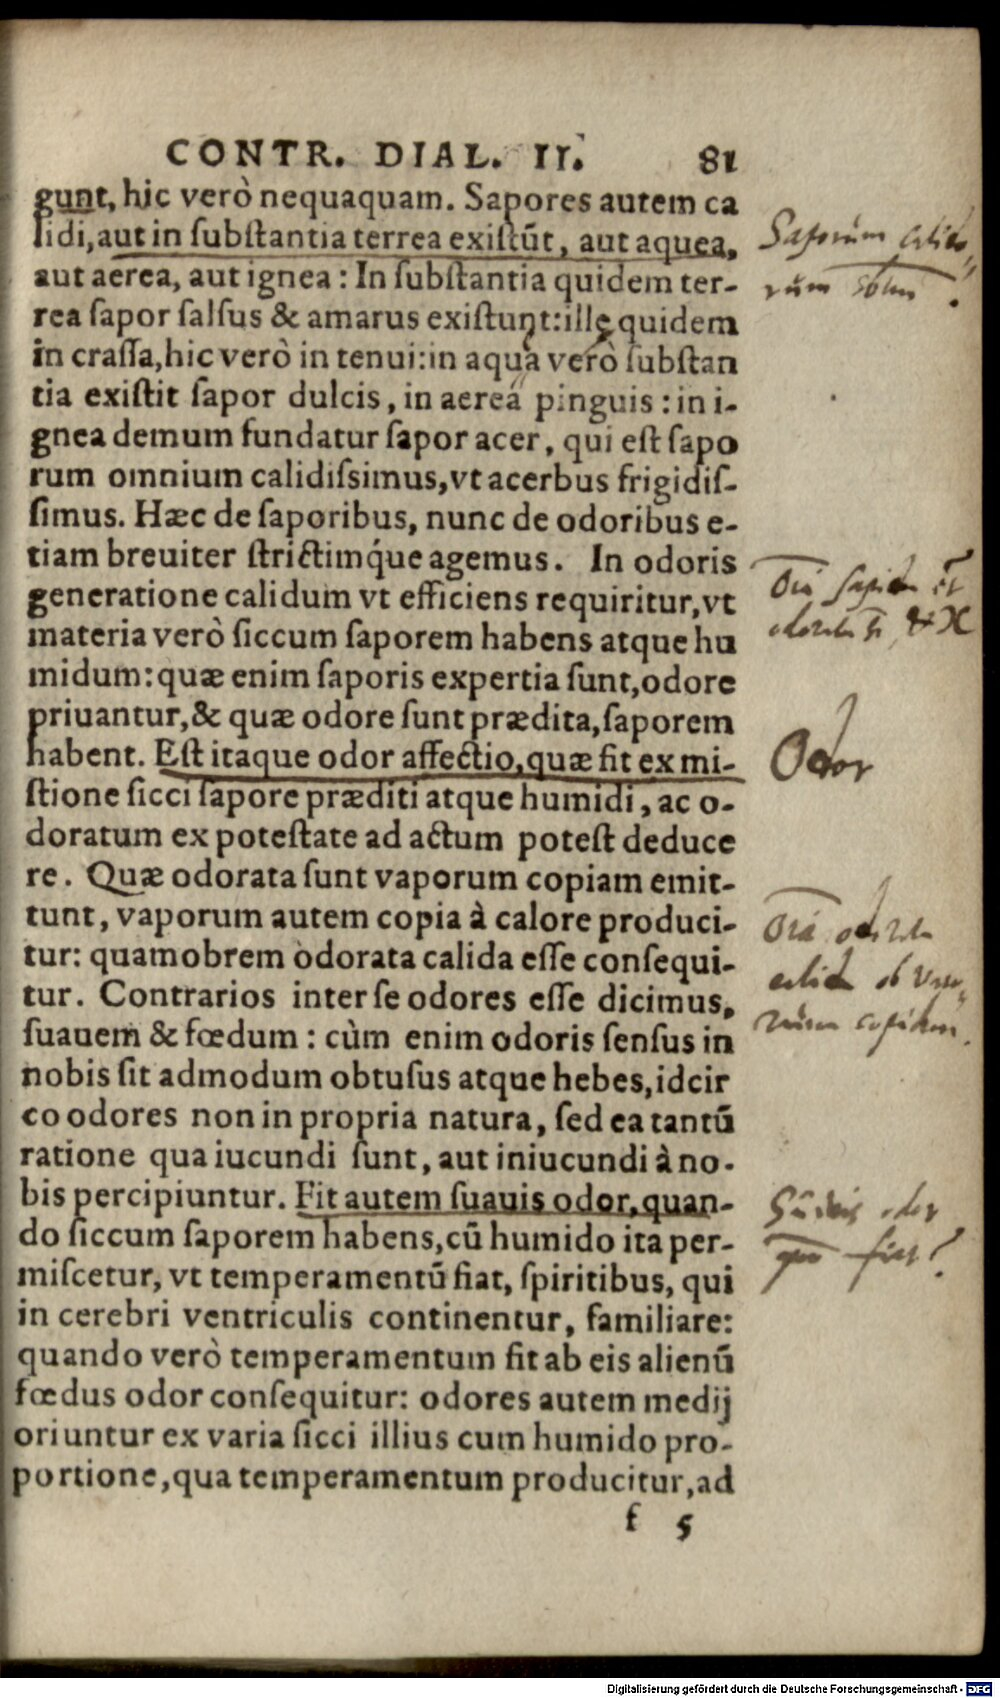 CONTR. DIAL. II. 81
gunt, hic verò nequaquam. Sapores autem ca
lidi, aut in ſubſtantia terrea exiſtūt, aut aquea,
aut aerea, aut ignea: In ſubſtantia quidem ter-
rea ſapor ſalſus & amarus exiſtunt: ille quidem
in craſſa, hic verò in tenui: in aqua verò ſubſtan
tia exiſtit ſapor dulcis, in aerea pinguis: in i-
gnea demum fundatur ſapor acer, qui eſt ſapo
rum omnium calidiſsimus, vt acerbus frigidiſ-
ſimus. Hæc de ſaporibus, nunc de odoribus e-
tiam breuiter ſtrictimq́ue agemus. In odoris
generatione calidum vt efficiens requiritur, vt
materia verò ſiccum ſaporem habens atque hu
midum: quæ enim ſaporis expertia ſunt, odore
priuantur, & quæ odore ſunt prædita, ſaporem
habent. Eſt itaque odor affectio, quæ fit ex mi-
ſtione ſicci ſapore præditi atque humidi, ac o-
doratum ex poteſtate ad actum poteſt deduce
re. Quæ odorata ſunt vaporum copiam emit-
tunt, vaporum autem copia à calore produci-
tur: quamobrem odorata calida eſſe conſequi-
tur. Contrarios inter ſe odores eſſe dicimus,
ſuauem & fœdum: cùm enim odoris ſenſus in
nobis ſit admodum obtuſus atque hebes, idcir
co odores non in propria natura, ſed ea tantū
ratione qua iucundi ſunt, aut iniucundi à no-
bis percipiuntur. Fit autem ſuauis odor, quan-
do ſiccum ſaporem habens, cū humido ita per-
miſcetur, vt temperamentū fiat, ſpiritibus, qui
in cerebri ventriculis continentur, familiare:
quando verò temperamentum fit ab eis alienū
fœdus odor conſequitur: odores autem medij
oriuntur ex varia ſicci illius cum humido pro-
portione, qua temperamentum producitur, ad
f 5
Saporum calido-
rum
Odor
odor
fiat?
Digitalisierung gefördert durch die Deutsche Forschungsgemeinschaft - DFG